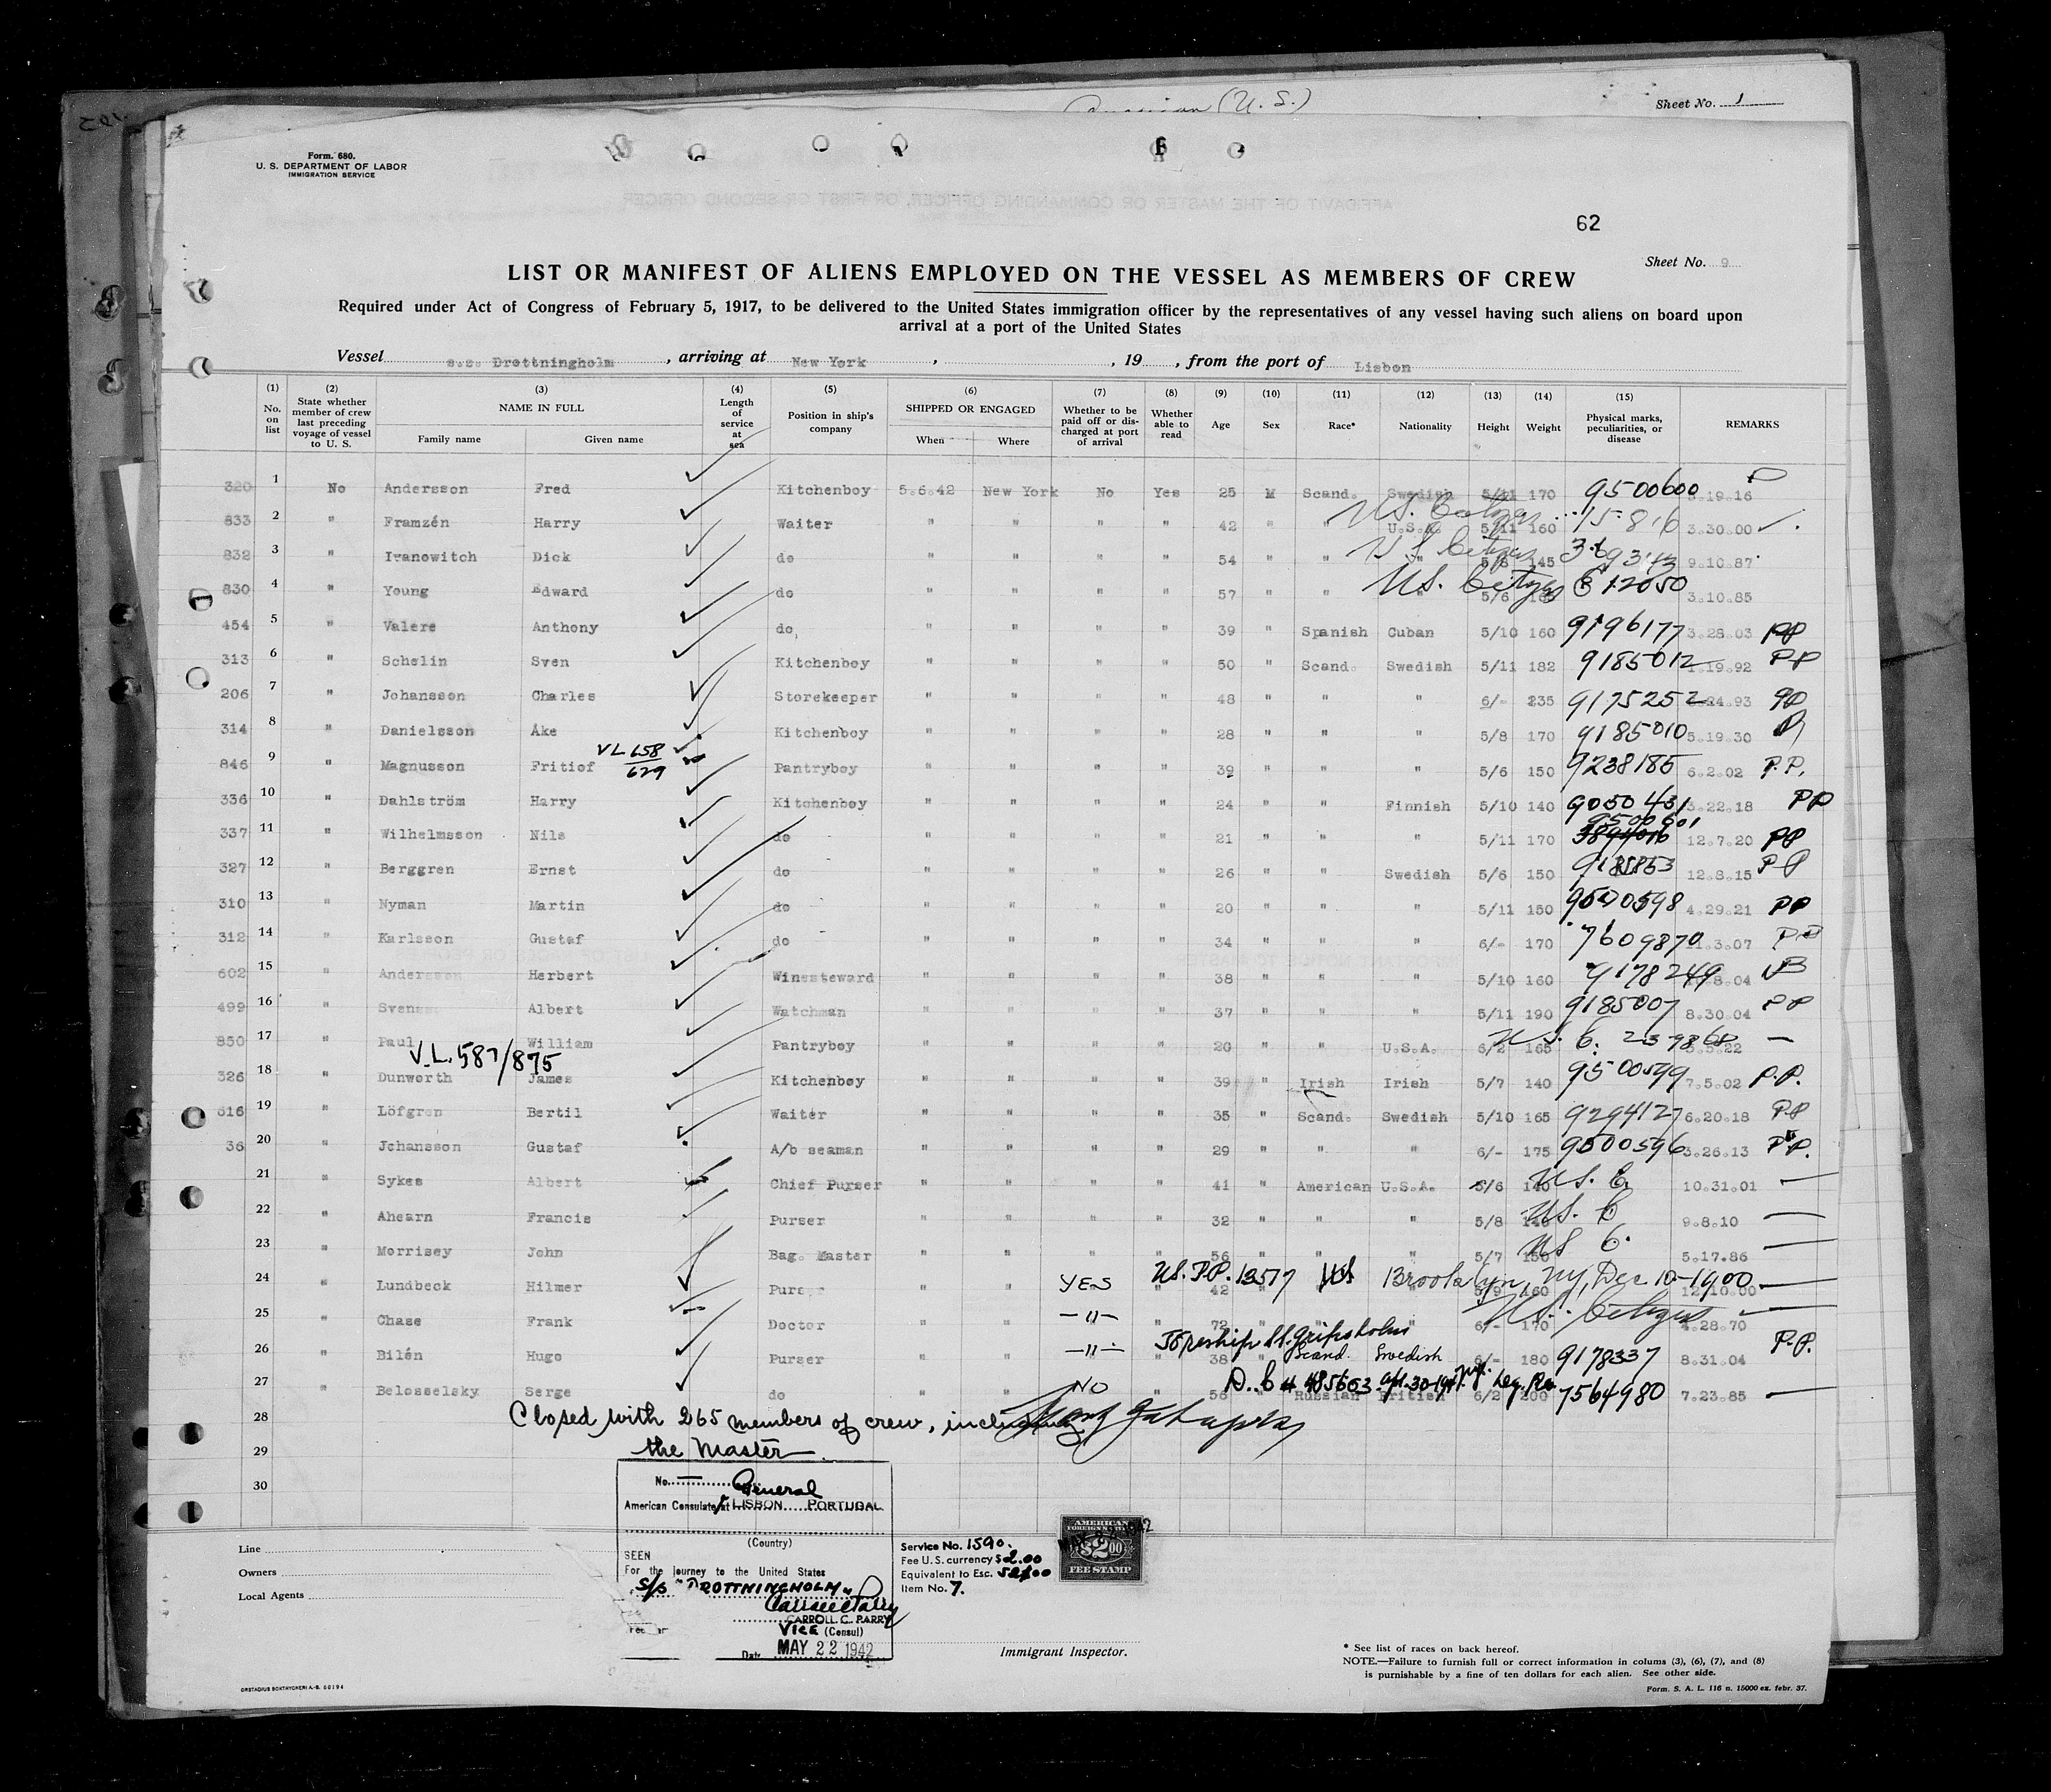 (U. S.)
Sheet No. 1
Form. 680.
U. S. DEPARTMENT OF LABOR
IMMIGRATION SERVICE
62
Sheet No. 9
LIST OR MANIFEST OF ALIENS EMPLOYED ON THE VESSEL AS MEMBERS OF CREW
Required under Act of Congress of February 5, 1917, to be delivered to the United States immigration officer by the representatives of any vessel having such aliens on board upon
arrival at a port of the United States
Vessel s.s. Drottningholm, arriving at New York, , 19 , from the port of Lisbon
(1) No. on list (2) State whether member of crew last preceding voyage of vessel to U. S. (3) NAME IN FULL Family name Given name (4) Length of service at sea (5) Position in ship's company (6) SHIPPED OR ENGAGED When Where (7) Whether to be paid off or discharged at port of arrival (8) Whether able to read (9) Age (10) Sex (11) Race* (12) Nationality (13) Height (14) Weight (15) Physical marks, peculiarities, or disease REMARKS
320 1 No Andersson Fred Kitchenboy 5.6.42 New York No Yes 25 M Scand. Swedish 5/11 170 9500600 .19.16
833 2 " Framzén Harry Waiter " " " " 42 " " U.S.A. 5/11 160 U.S. Citizen 15816 3.30.00
832 3 " Ivanowitch Dick do " " " " 54 " " " 5/8 145 U S Citizen 9.10.87
830 4 " Young Edward do " " " " 57 " " 5/6 U.S. Citizen 612050 3.10.85
454 5 " Valere Anthony do, " " " " 39 " Spanish Cuban 5/10 160 9196177 3.28.03 PP
313 6 " Schelin Sven Kitchenboy " " " " 50 " Scand. Swedish 5/11 182 9185012 .19.92 PP
206 7 " Johansson Charles Storekeeper " " " " 48 " " " 6/- 235 9175252 .24.93 PP
314 8 " Danielsson Åke Kitchenboy " " " " 28 " " " 5/8 170 9185010 5.19.30
846 9 " Magnusson Fritiof VL 658/629 Pantryboy " " " " 39 " " " 5/6 150 9238185 6.2.02 P.P.
336 10 " Dahlström Harry Kitchenboy " " " " 24 " " Finnish 5/10 140 9050431 3.22.18 PP
337 11 " Wilhelmsson Nils do " " " " 21 " " " 5/11 170 9500601 12.7.20 PP
327 12 " Berggren Ernst do " " " " 26 " " Swedish 5/6 150 12.8.15 PP
310 13 " Nyman Martin do " " " " 20 " " " 5/11 150 9500598 4.29.21 PP
312 14 " Karlsson Gustaf do " " " " 34 " " " 6/- 170 7609870 .3.07 PP
602 15 " Andersson Herbert Winesteward " " " " 38 " " " 5/10 160 9178249 .8.04
499 16 " Svens Albert Watchman " " " " 37 " " " 5/11 190 9185007 8.30.04 PP
850 17 " Paul William Pantryboy " " " " 20 " " U.S.A. 6/2 165 U.S. C. 239868 .22 —
V.L. 587/875
326 18 " Dunworth James Kitchenboy " " " " 39 " Irish Irish 5/7 140 9500599 7.5.02 P.P.
616 19 " Löfgren Bertil Waiter " " " " 35 " Scand. Swedish 5/10 165 9294127 6.20.18 PP
36 20 " Johansson Gustaf A/b seaman " " " " 29 " " " 6/- 175 9500596 3.26.13 P.P.
21 " Sykes Albert Chief Purser " " " " 41 " American U.S.A. 5/6 140 U.S. C. 10.31.01 —
22 " Ahearn Francis Purser " " " " 32 " " " 5/8 U.S. C 9.8.10 —
23 " Morrisey John Bag. Master " " " " 56 " " " 5/7 150 US C. 5.17.86 —
24 " Lundbeck Hilmer Purser " " YES " 42 U.S. P.P. 13577 US Brooklyn, NY, Dec 10-1900 5/9 160 12.10.00 —
25 " Chase Frank Doctor " " —"— " 72 " " " 6/- 170 U.S. Citizen 4.28.70 —
26 " Bilén Hugo Purser " " —"— To reship SS. Gripsholm 38 Scand. Swedish 6/- 180 9178337 8.31.04 P.P.
27 " Belosselsky Serge do " " NO " 56 Russian British 6/2 200 7564980 7.23.85 —
28 Closed with 265 members of crew, including
29 the Master.
30
No. — General
American Consulate at LISBON PORTUGAL
(Country)
SEEN
For the journey to the United States
S/S "DROTTNINGHOLM"
CARROLL C. PARRY
VICE (Consul)
Date MAY 22 1942
Service No. 1590.
Fee U.S. currency $2.00
Equivalent to Esc.
Item No. 7.
AMERICAN
FOREIGN SERVICE
$2.00
FEE STAMP
Line
Owners
Local Agents
Immigrant Inspector.
* See list of races on back hereof.
NOTE.—Failure to furnish full or correct information in colums (3), (6), (7), and (8)
is punishable by a fine of ten dollars for each alien. See other side.
Form. S. A. L. 116 n. 15000 ex. febr. 37.